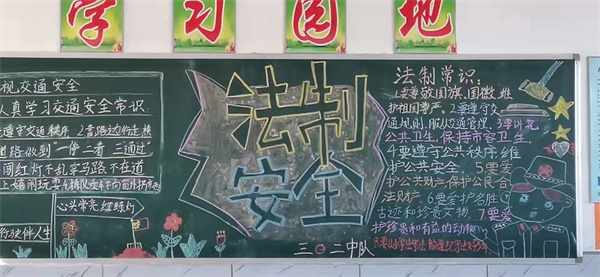 学习园地
视交通安全
认真学习交通安全常识
遵守交通秩序 2靠路边行走横
道路做到"一停二看三通过"
闯红灯不乱穿马路不在道
上嬉闹玩耍
心头常亮红绿灯
行驶伴人生
法制
安全
三〇二中队
法制常识:
1要尊敬国旗、国徽,维
护祖国尊严。2要遵守交
通规则,服从交通管理。3要讲究
公共卫生,保持市容卫生。
4要遵守公共秩序,维
护公共安全。5要爱
护公共财产,保护公民合
法财产。6要爱护名胜
古迹和珍贵文物。7要爱
护珍贵和有益的动物。